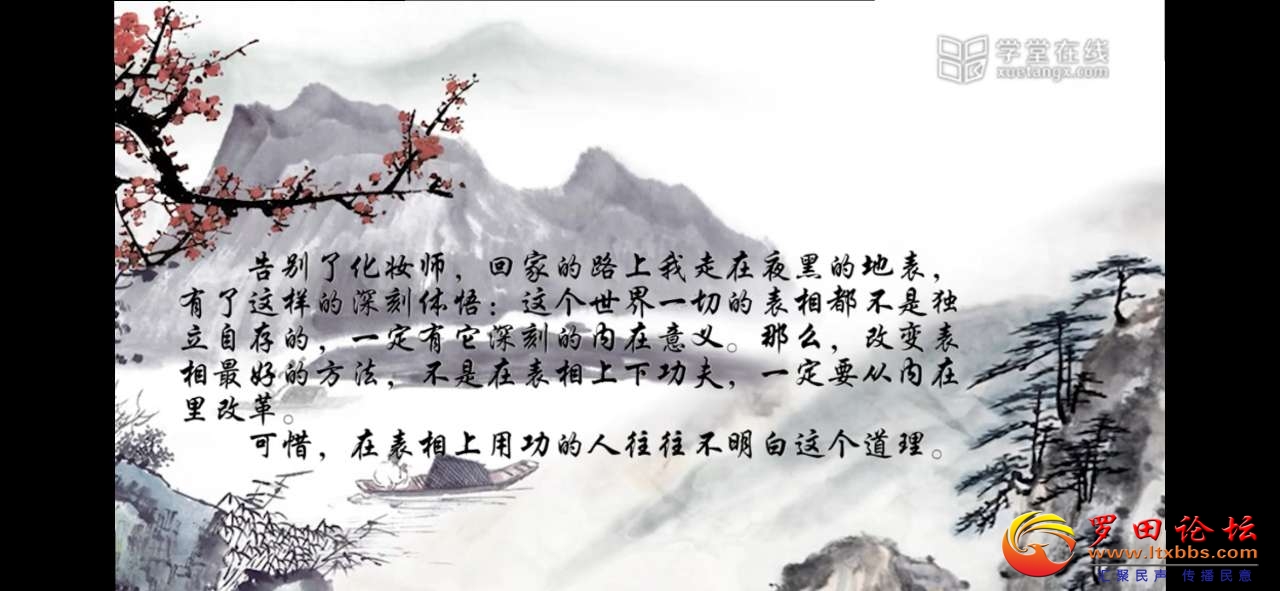 学堂在线
xuetangx.com
告别了化妆师，回家的路上我走在夜黑的地表，
有了这样的深刻体悟：这个世界一切的表相都不是独
立自存的，一定有它深刻的内在意义。那么，改变表
相最好的方法，不是在表相上下功夫，一定要从内在
里改革。
可惜，在表相上用功的人往往不明白这个道理。
罗田论坛
www.ltxbbs.com
汇聚民声 传播民意